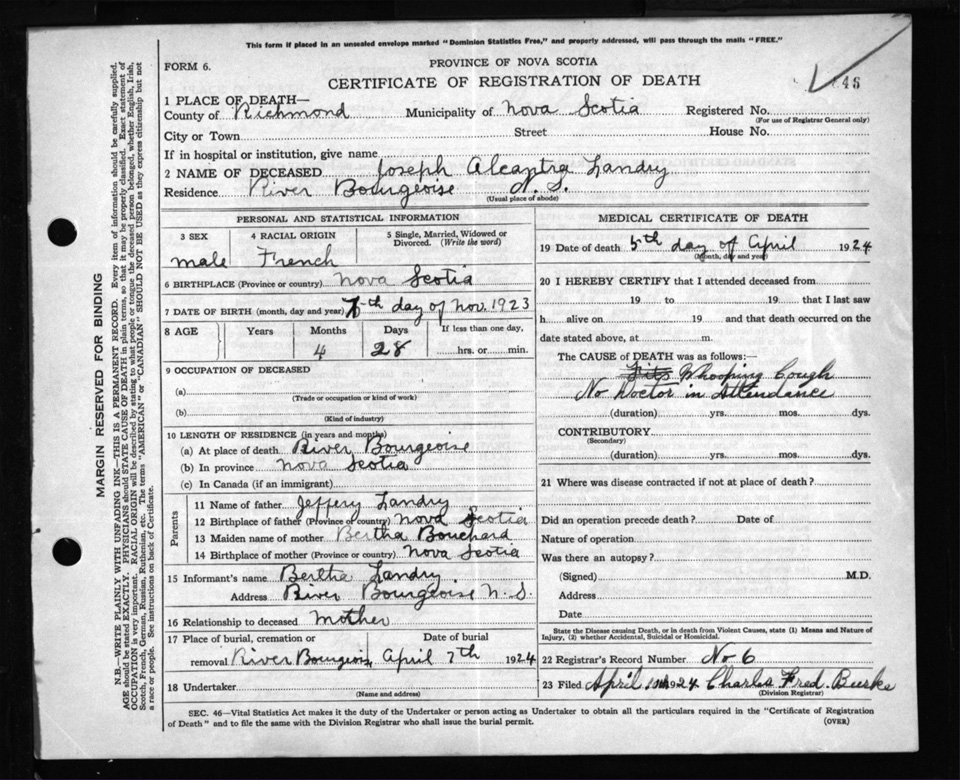 This form if placed in an unsealed envelope marked "Dominion Statistics Free," and properly addressed, will pass through the mails "FREE."
FORM 6.
PROVINCE OF NOVA SCOTIA
CERTIFICATE OF REGISTRATION OF DEATH
46
1 PLACE OF DEATH—
County of Richmond Municipality of Nova Scotia Registered No.
(For use of Registrar General only)
City or Town Street House No.
If in hospital or institution, give name
2 NAME OF DECEASED Joseph Alcantra Landry
Residence River Bourgeoise N. S.
(Usual place of abode)
PERSONAL AND STATISTICAL INFORMATION
3 SEX 4 RACIAL ORIGIN 5 Single, Married, Widowed or Divorced. (Write the word)
male French
6 BIRTHPLACE (Province or country) Nova Scotia
7 DATE OF BIRTH (month, day and year) 7th day of Nov. 1923
8 AGE Years Months Days If less than one day,
4 28 hrs. or min.
9 OCCUPATION OF DECEASED
(a)
(Trade or occupation or kind of work)
(b)
(Kind of industry)
10 LENGTH OF RESIDENCE (in years and months)
(a) At place of death River Bourgeoise
(b) In province Nova Scotia
(c) In Canada (if an immigrant)
Parents
11 Name of father Jeffery Landry
12 Birthplace of father (Province or country) Nova Scotia
13 Maiden name of mother Bertha Bouchard
14 Birthplace of mother (Province or country) Nova Scotia
15 Informant's name Bertha Landry
Address River Bourgeoise N. S.
16 Relationship to deceased Mother
17 Place of burial, cremation or Date of burial
removal River Bourgeois, April 7th 1924
18 Undertaker
(Name and address)
MEDICAL CERTIFICATE OF DEATH
19 Date of death 5th day of April 1924
(Month, day and year)
20 I HEREBY CERTIFY that I attended deceased from
19 to 19 that I last saw
h alive on 19 and that death occurred on the
date stated above, at m.
The CAUSE of DEATH was as follows:—
Fits Whooping Cough
No Doctor in Attendance
(duration) yrs. mos. dys.
CONTRIBUTORY
(Secondary)
(duration) yrs. mos. dys.
21 Where was disease contracted if not at place of death?
Did an operation precede death? Date of
Nature of operation
Was there an autopsy?
(Signed) M.D.
Address
Date
State the Disease causing Death, or in death from Violent Causes, state (1) Means and Nature of
Injury, (2) whether Accidental, Suicidal or Homicidal.
22 Registrar's Record Number No 6
23 Filed April 1924 Charles Fred. Burke
(Division Registrar)
SEC. 46—Vital Statistics Act makes it the duty of the Undertaker or person acting as Undertaker to obtain all the particulars required in the "Certificate of Registration
of Death" and to file the same with the Division Registrar who shall issue the burial permit.
(OVER)
MARGIN RESERVED FOR BINDING
N.B.—WRITE PLAINLY WITH UNFADING INK—THIS IS A PERMANENT RECORD. Every item of information should be carefully supplied.
AGE should be stated EXACTLY. PHYSICIANS should STATE CAUSE OF DEATH in plain terms, so that it may be properly classified. Exact statement of
OCCUPATION is very important. RACIAL ORIGIN will be described by stating to what people or tongue the deceased person belonged, whether English, Irish,
Scotch, French, German, Russian, Ruthenian, etc. The terms "AMERICAN" or "CANADIAN" SHOULD NOT BE USED as they express citizenship but not
a race or people. See instructions on back of Certificate.